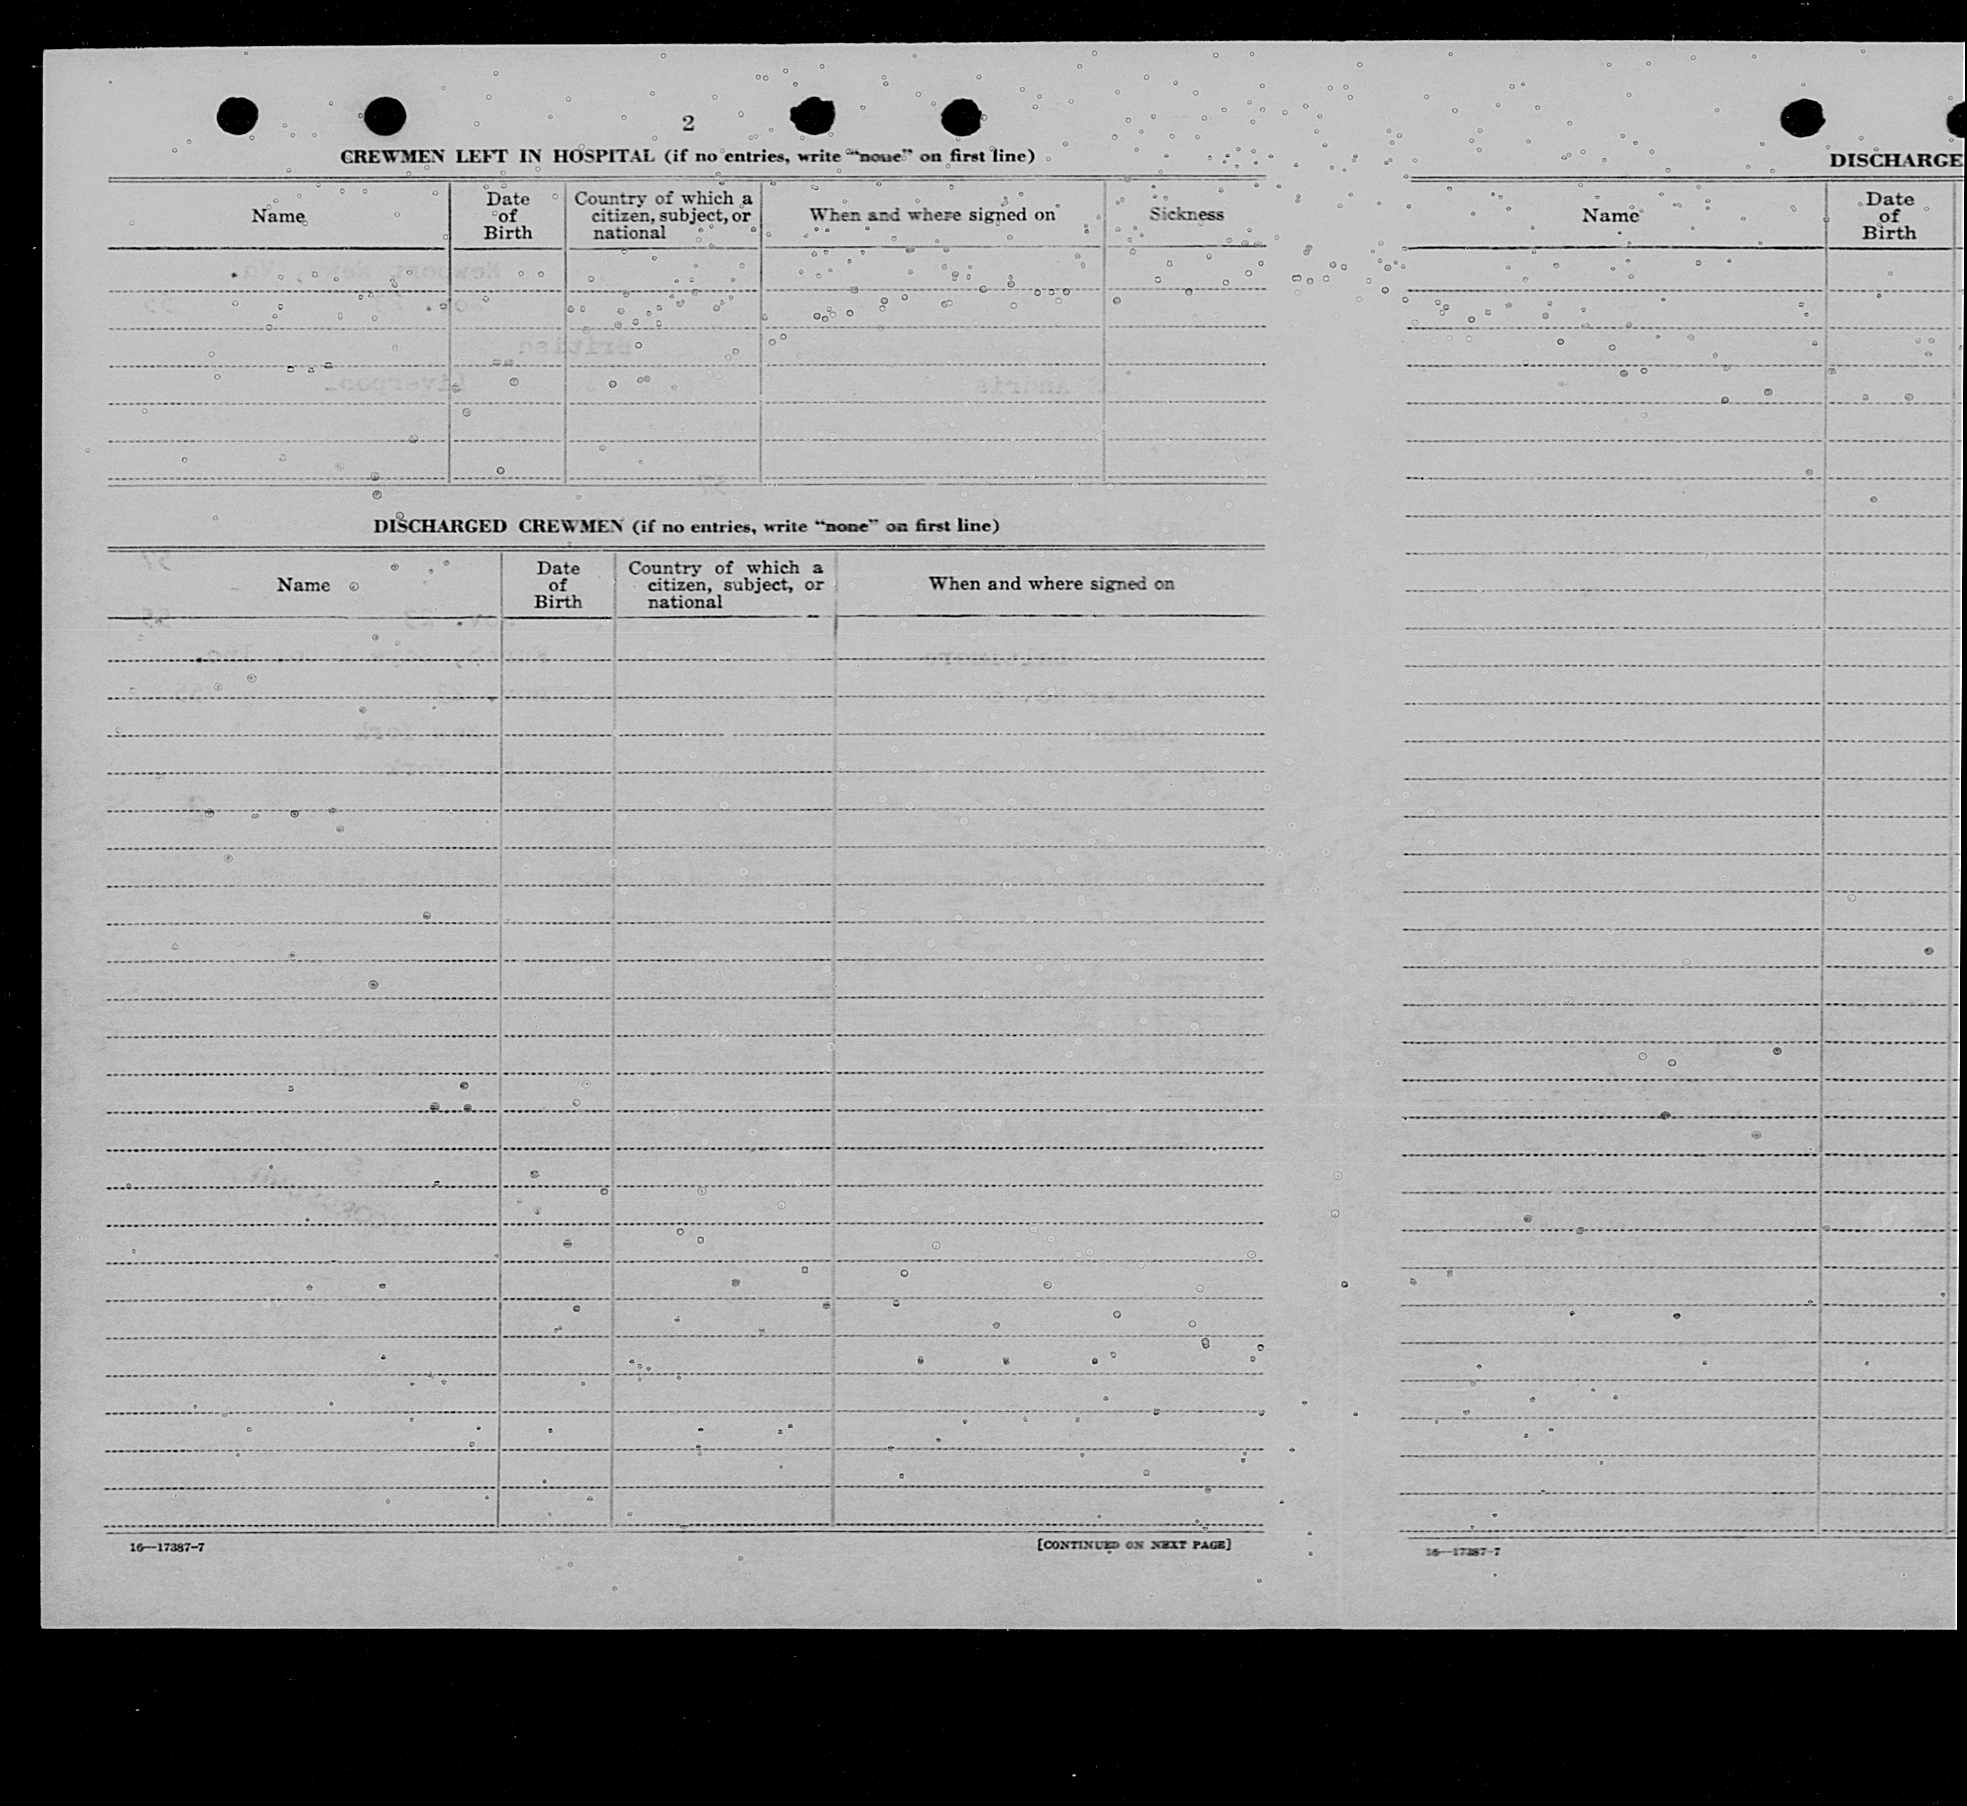 2
CREWMEN LEFT IN HOSPITAL (if no entries, write “none” on first line)
Name
Date
of
Birth
Country of which a
citizen, subject, or
national
When and where signed on
Sickness
DISCHARGED CREWMEN (if no entries, write “none” on first line)
Name
Date
of
Birth
Country of which a
citizen, subject, or
national
When and where signed on
16—17387-7
[CONTINUED ON NEXT PAGE]
DISCHARGE
Name
Date
of
Birth
16—17387-7